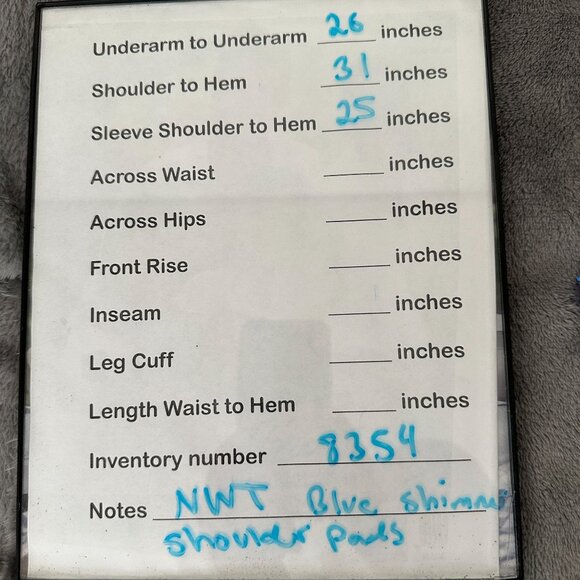 Underarm to Underarm 26 inches
Shoulder to Hem 31 inches
Sleeve Shoulder to Hem 25 inches
Across Waist ____ inches
Across Hips ____ inches
Front Rise ____ inches
Inseam ____ inches
Leg Cuff ____ inches
Length Waist to Hem ____ inches
Inventory number 8354
Notes NWT Blue Shimmer
shoulder pads